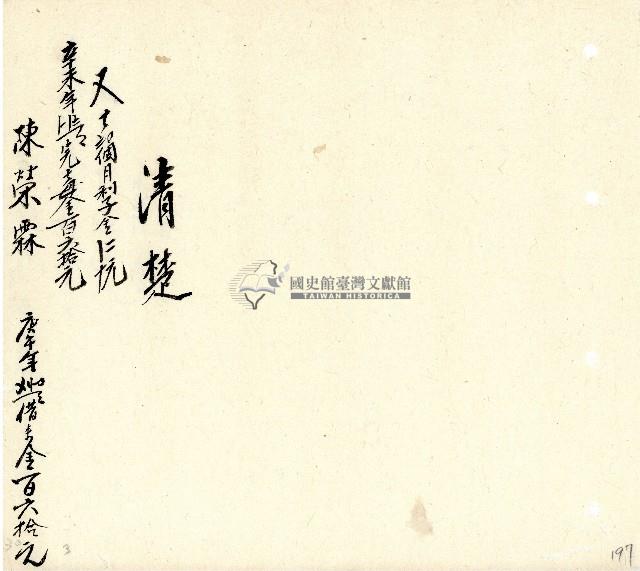 清楚
又十二個月利子金仁坑
辛未年 完 金百六拾元
陳榮霖 庚午年 借去金百六拾元
國史館臺灣文獻館
TAIWAN HISTORICA
3
197